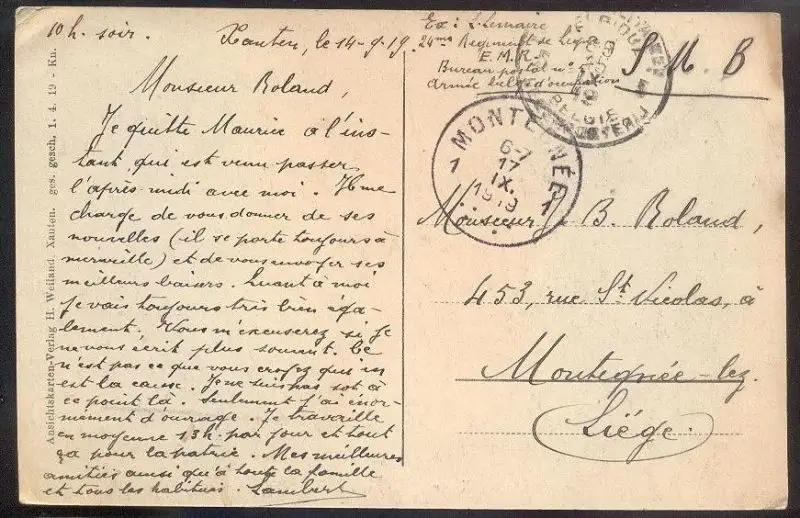 10 h. soir. Xanten, le 14-9-19
Monsieur Roland,
Je quitte Maurice à l'ins-
tant qui est venu passer
l'après-midi avec moi. Il me
charge de vous donner de ses
nouvelles (il se porte toujours à
merveille) et de vous envoyer ses
meilleurs baisers. Quant à moi
je vais toujours très bien éga-
lement. Vous m'excuserez si je
ne vous écrit plus souvent. Ce
n'est pas ce que vous croyez qui en
est la cause. Je ne suis pas sot à
ce point là. Seulement j'ai énor-
mément d'ouvrage. Je travaille
en moyenne 13h. par jour et tout
ça pour la patrie. Mes meilleures
amitiés ainsi qu'à toute la famille
et tous les habitués. Lambert
Ansichtskarten-Verlag H. Weiland, Xanten. ges. gesch. 1. 4. 19 - Kn.
Ex: L. Lemaire
24me Régiment de Ligne
E. M. R.
Bureau postal n°
Armée belge d'occupation
S. M. B
BELGIE
MONTEGNÉE
1 1
6-7
17
IX.
1919
Monsieur B. Roland,
453, rue St Nicolas, à
Montegnée-lez.
Liége.